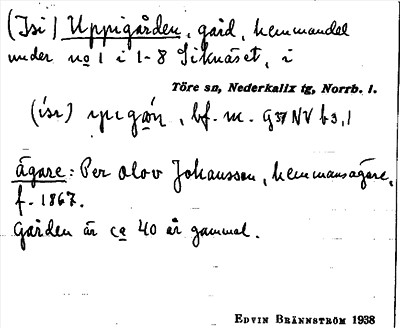 (Isi) Uppigården, gård, hemmandel
under no 1 i 1-8 Siknäset, i
Töre sn, Nederkalix tg, Norrb. l.
bf. m. G 37 NV b 3,1
ägare: Per Olov Johansson, hemmansägare,
f. 1867.
Gården är ca 40 år gammal.
EDVIN BRÄNNSTRÖM 1938